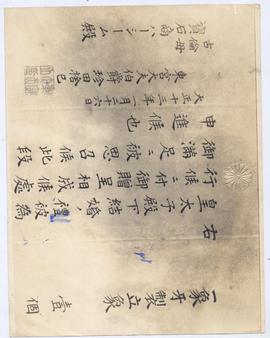 一象牙製立象 壹個
右
皇太子殿下結婚禮被為
行候ニ付御贈呈相成候處
御満足ニ被思召候此段
申進候也
大正十三年 月二十六日
東宮大夫伯爵珍田捨巳
寶石商ハシーム殿
古倫母